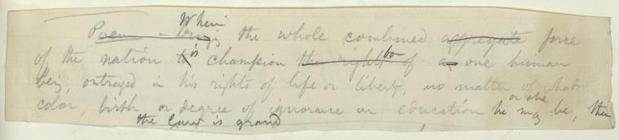 When
Poem – bring the whole combined aggregate force
of the nation is champion the rights to of a one human
being, outraged in his rights of life or liberty, no matter of what
or she
color, birth or degree of ignorance or education he may be, then
the Law is grand